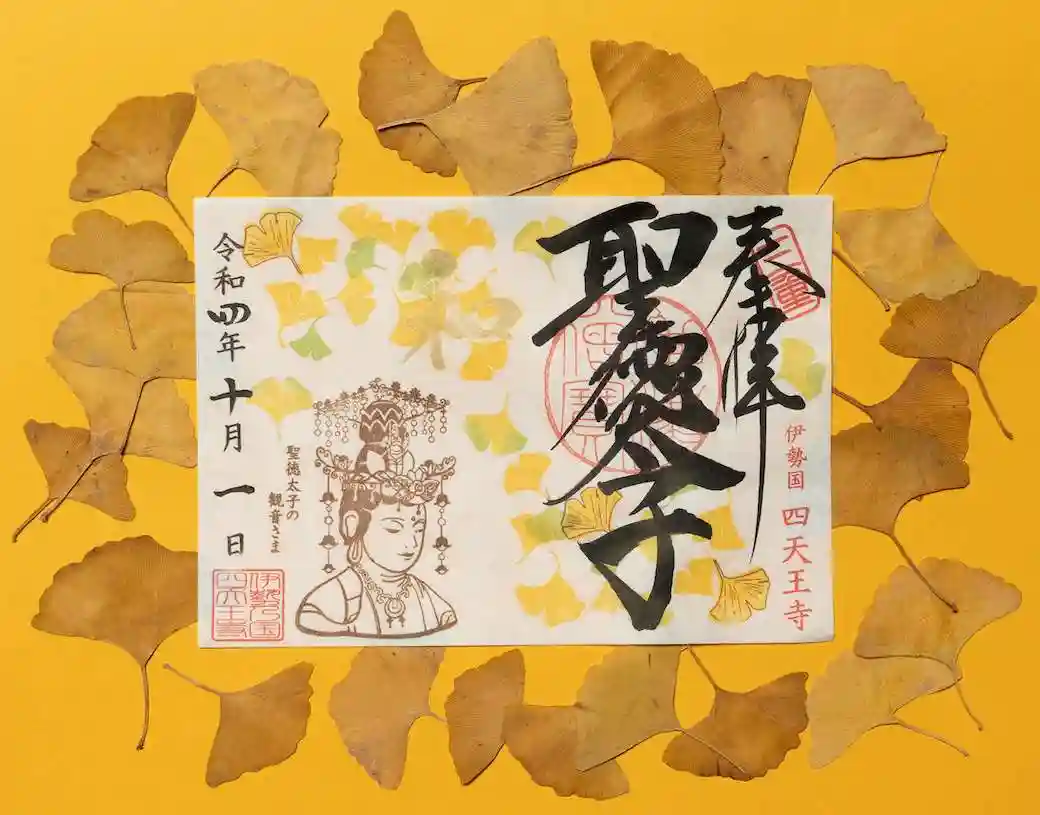 奉拝
聖徳太子
伊勢国 四天王寺
和
聖徳太子の
観音さま
令和四年十月一日
伊勢国
四天王寺